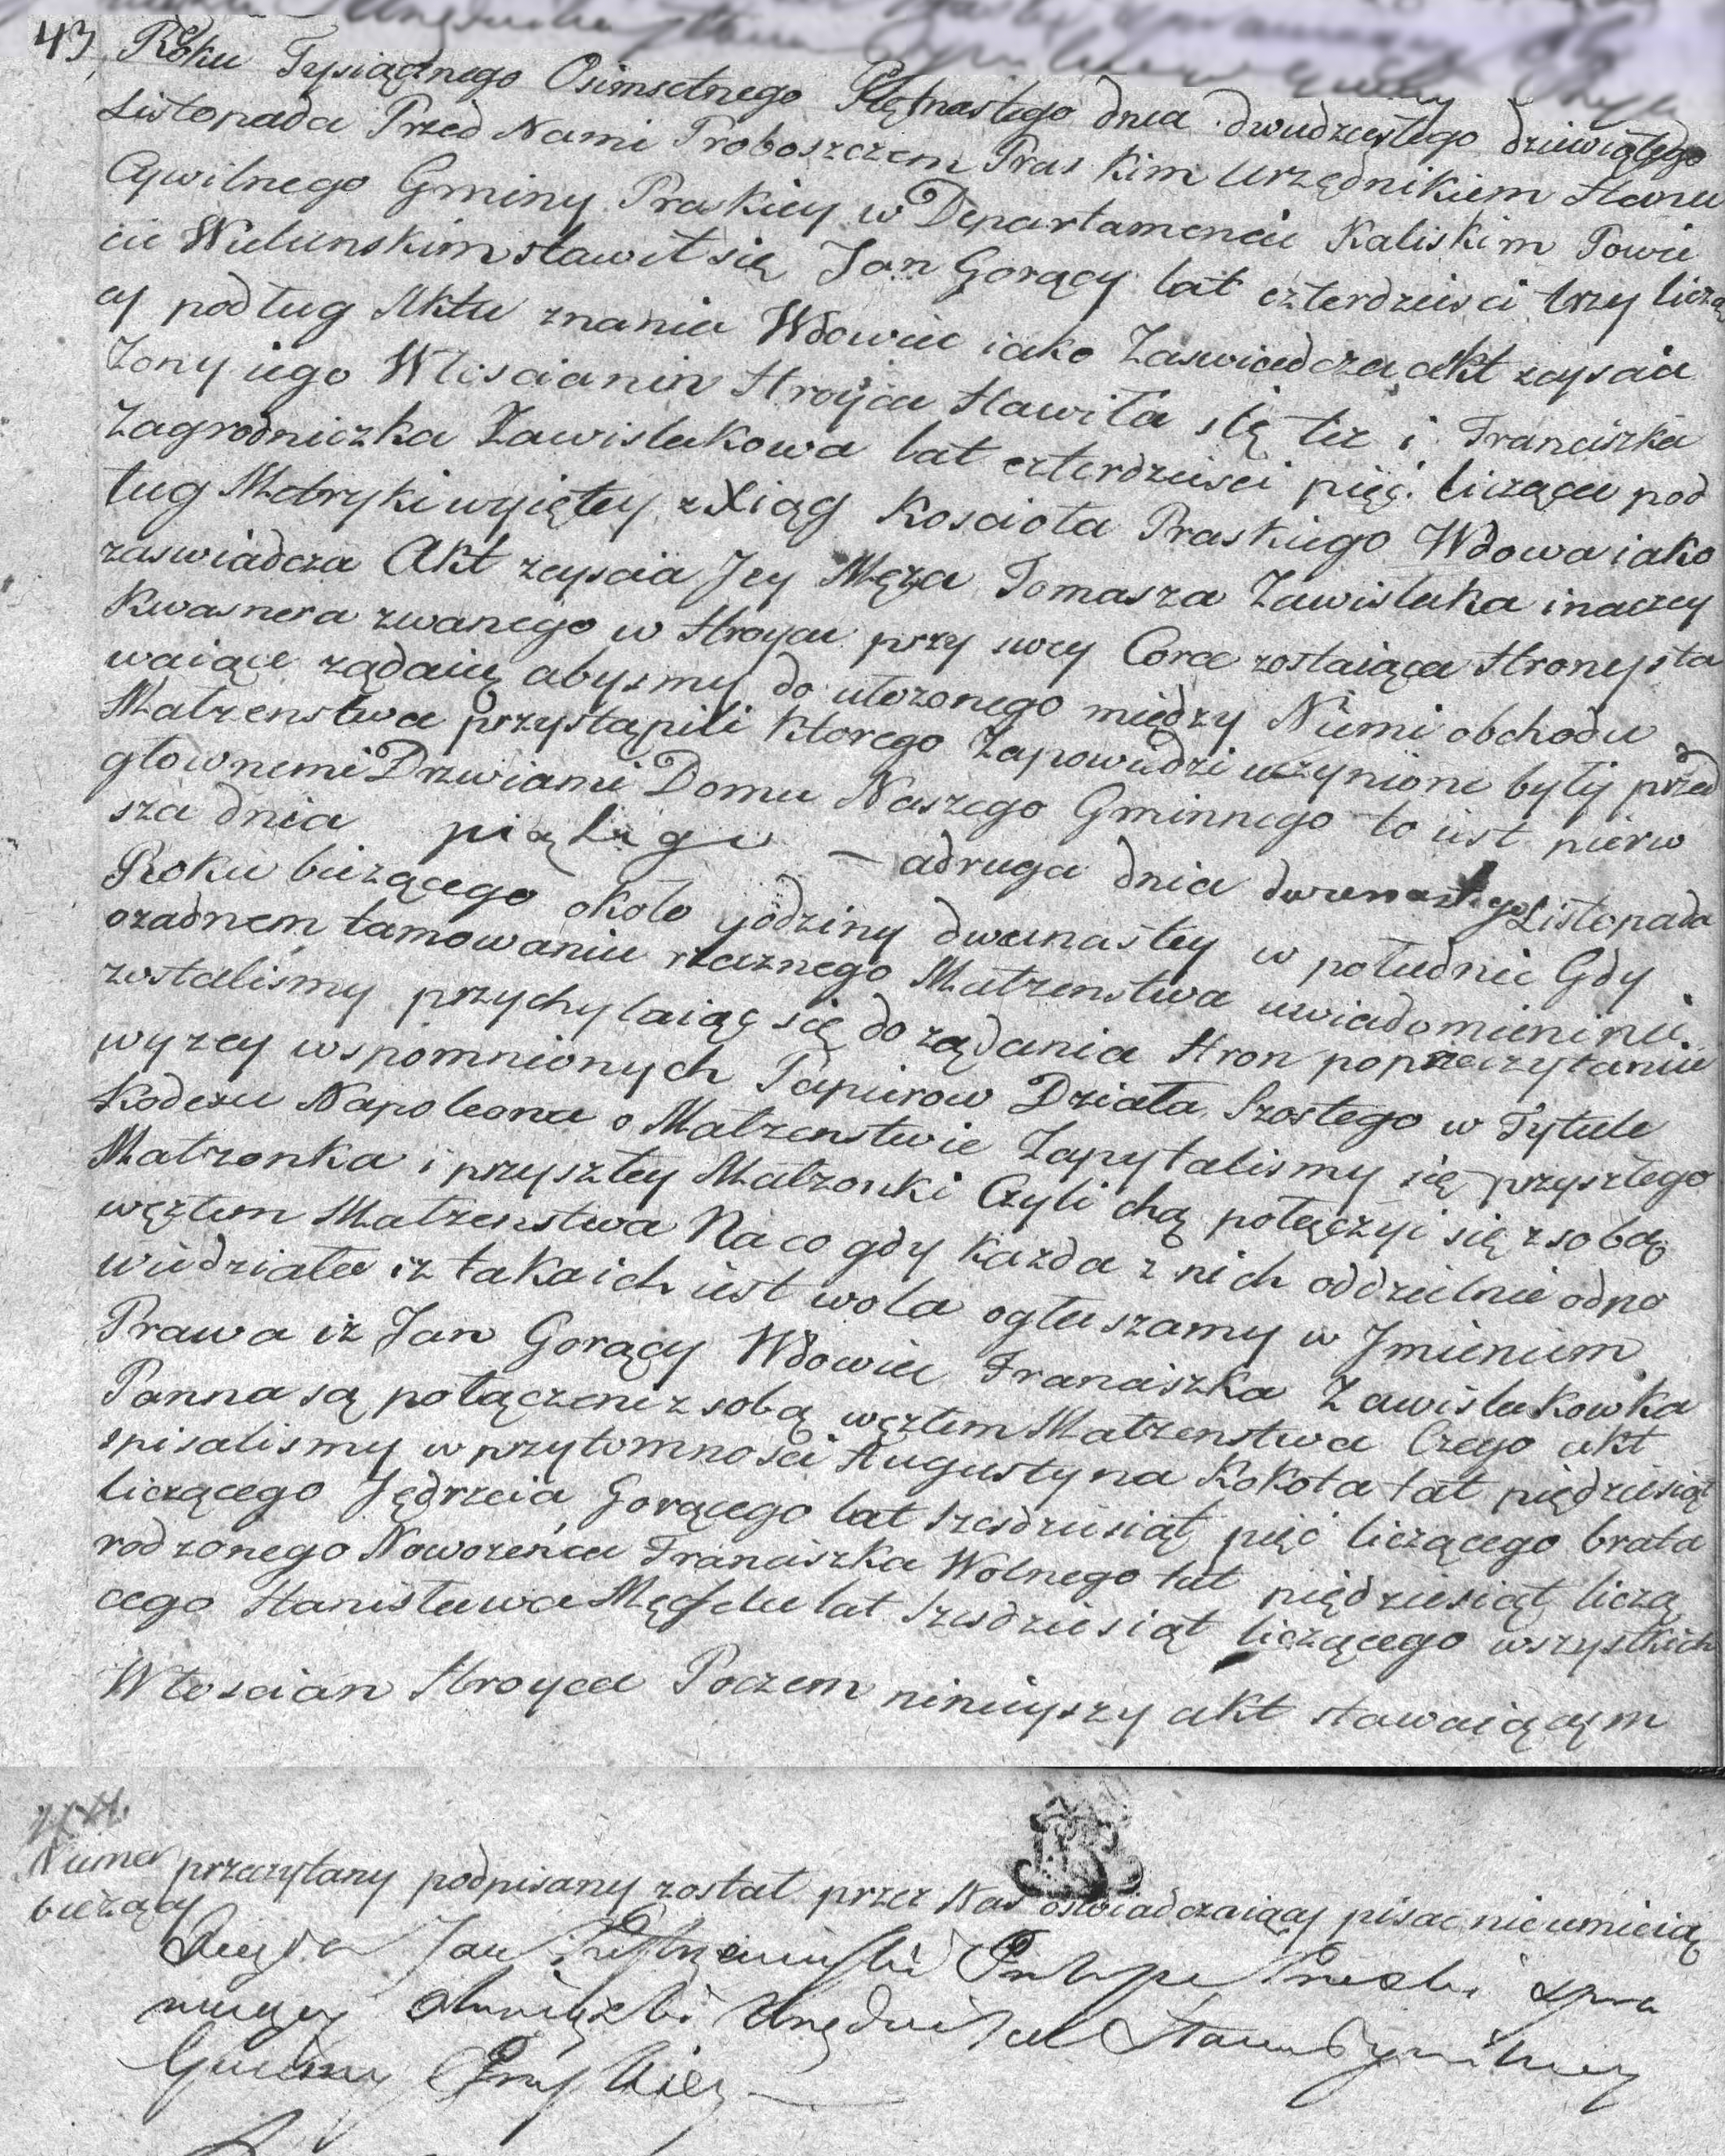 43, Roku Tysiącznego Osimsetnego Piętnastego dnia dwudziestego dziewiątego
Listopada Przed Nami Proboszczem Pras kim Urzędnikiem Stanu
Cywilnego Gminy Praskiey w Departamencie Kaliskim Powie
cie Wielunskim stawił się Jan Gorący lat czterdziesci trzy liczą
cy podług Aktu znania Wdowiec iako Zaswiadcza akt zeyscia
Zony iego Włoscianin Stroyca stawiła się tez i Franciszka
Zagrodniczka Zawislakowa lat czterdziesci pięć licząca pod
ług Metryki wyiętey z Xiąg Koscioła Praskiego Wdowa iako
zaswiadcza Akt zeyscia Jey Męza Tomasza Zawislaka inaczey
Kwasnera zwanego w Stroycu przy swey Corce zostaiąca Strony sta
waiące ządaią abysmy do ułozonego między Niemi obchodu
Malzenstwa przystąpili ktorego Zapowiedzi uczynione były przed
głownemi Drzwiami Domu Naszego Gminnego to iest pierw
sza dnia piątego — a druga dnia dwunastego Listopada
Roku biezącego około godziny dwunastey w południe Gdy
ozadnem tamowaniu rzecznego Malzenstwa uwiadomieni nie
zostalismy przychylaiąc się do ządania Stron poprzeczytaniu
wyzey wspomnionych Papierow Działa Szostego w Tytule
Kodexu Napoleona o Malzenstwie Zapytalismy się przyszłego
Malzonka i przyszłey Malzonki Czyli chą połączyć się z sobą
węzłem Malzenstwa Na co gdy kazda z nich oddzielnie odpo
wiedziała iz taka ich iest wola ogłaszamy w Jmieniem
Prawa iz Jan Gorący Wdowiec Franciszka Zawislakowka
Panna są połączeni z sobą węzłem Malzenstwa Czego akt
spisalismy w przytomnosci Augustyna Kokota lat pięcdziesiąt
liczącego Jędrzeia Gorącego lat szescdziesiąt pięć liczącego brata
rodzonego Nowozeńca Franciszka Wolnego lat pięcdziesiąt liczą
cego Stanisława lat szescdziesiąt liczącego wszystkich
Włoscian Stroyca Poczem ninieyszy akt stawaiącym
przeczytany podpisany został przez Nas oswiadczaiący pisac nieumieią
Xiądz Jan Proboszcz Praski spra
wuiący obowiązki Urzędnika Stanu Cywilnego
Gminy Praskiey